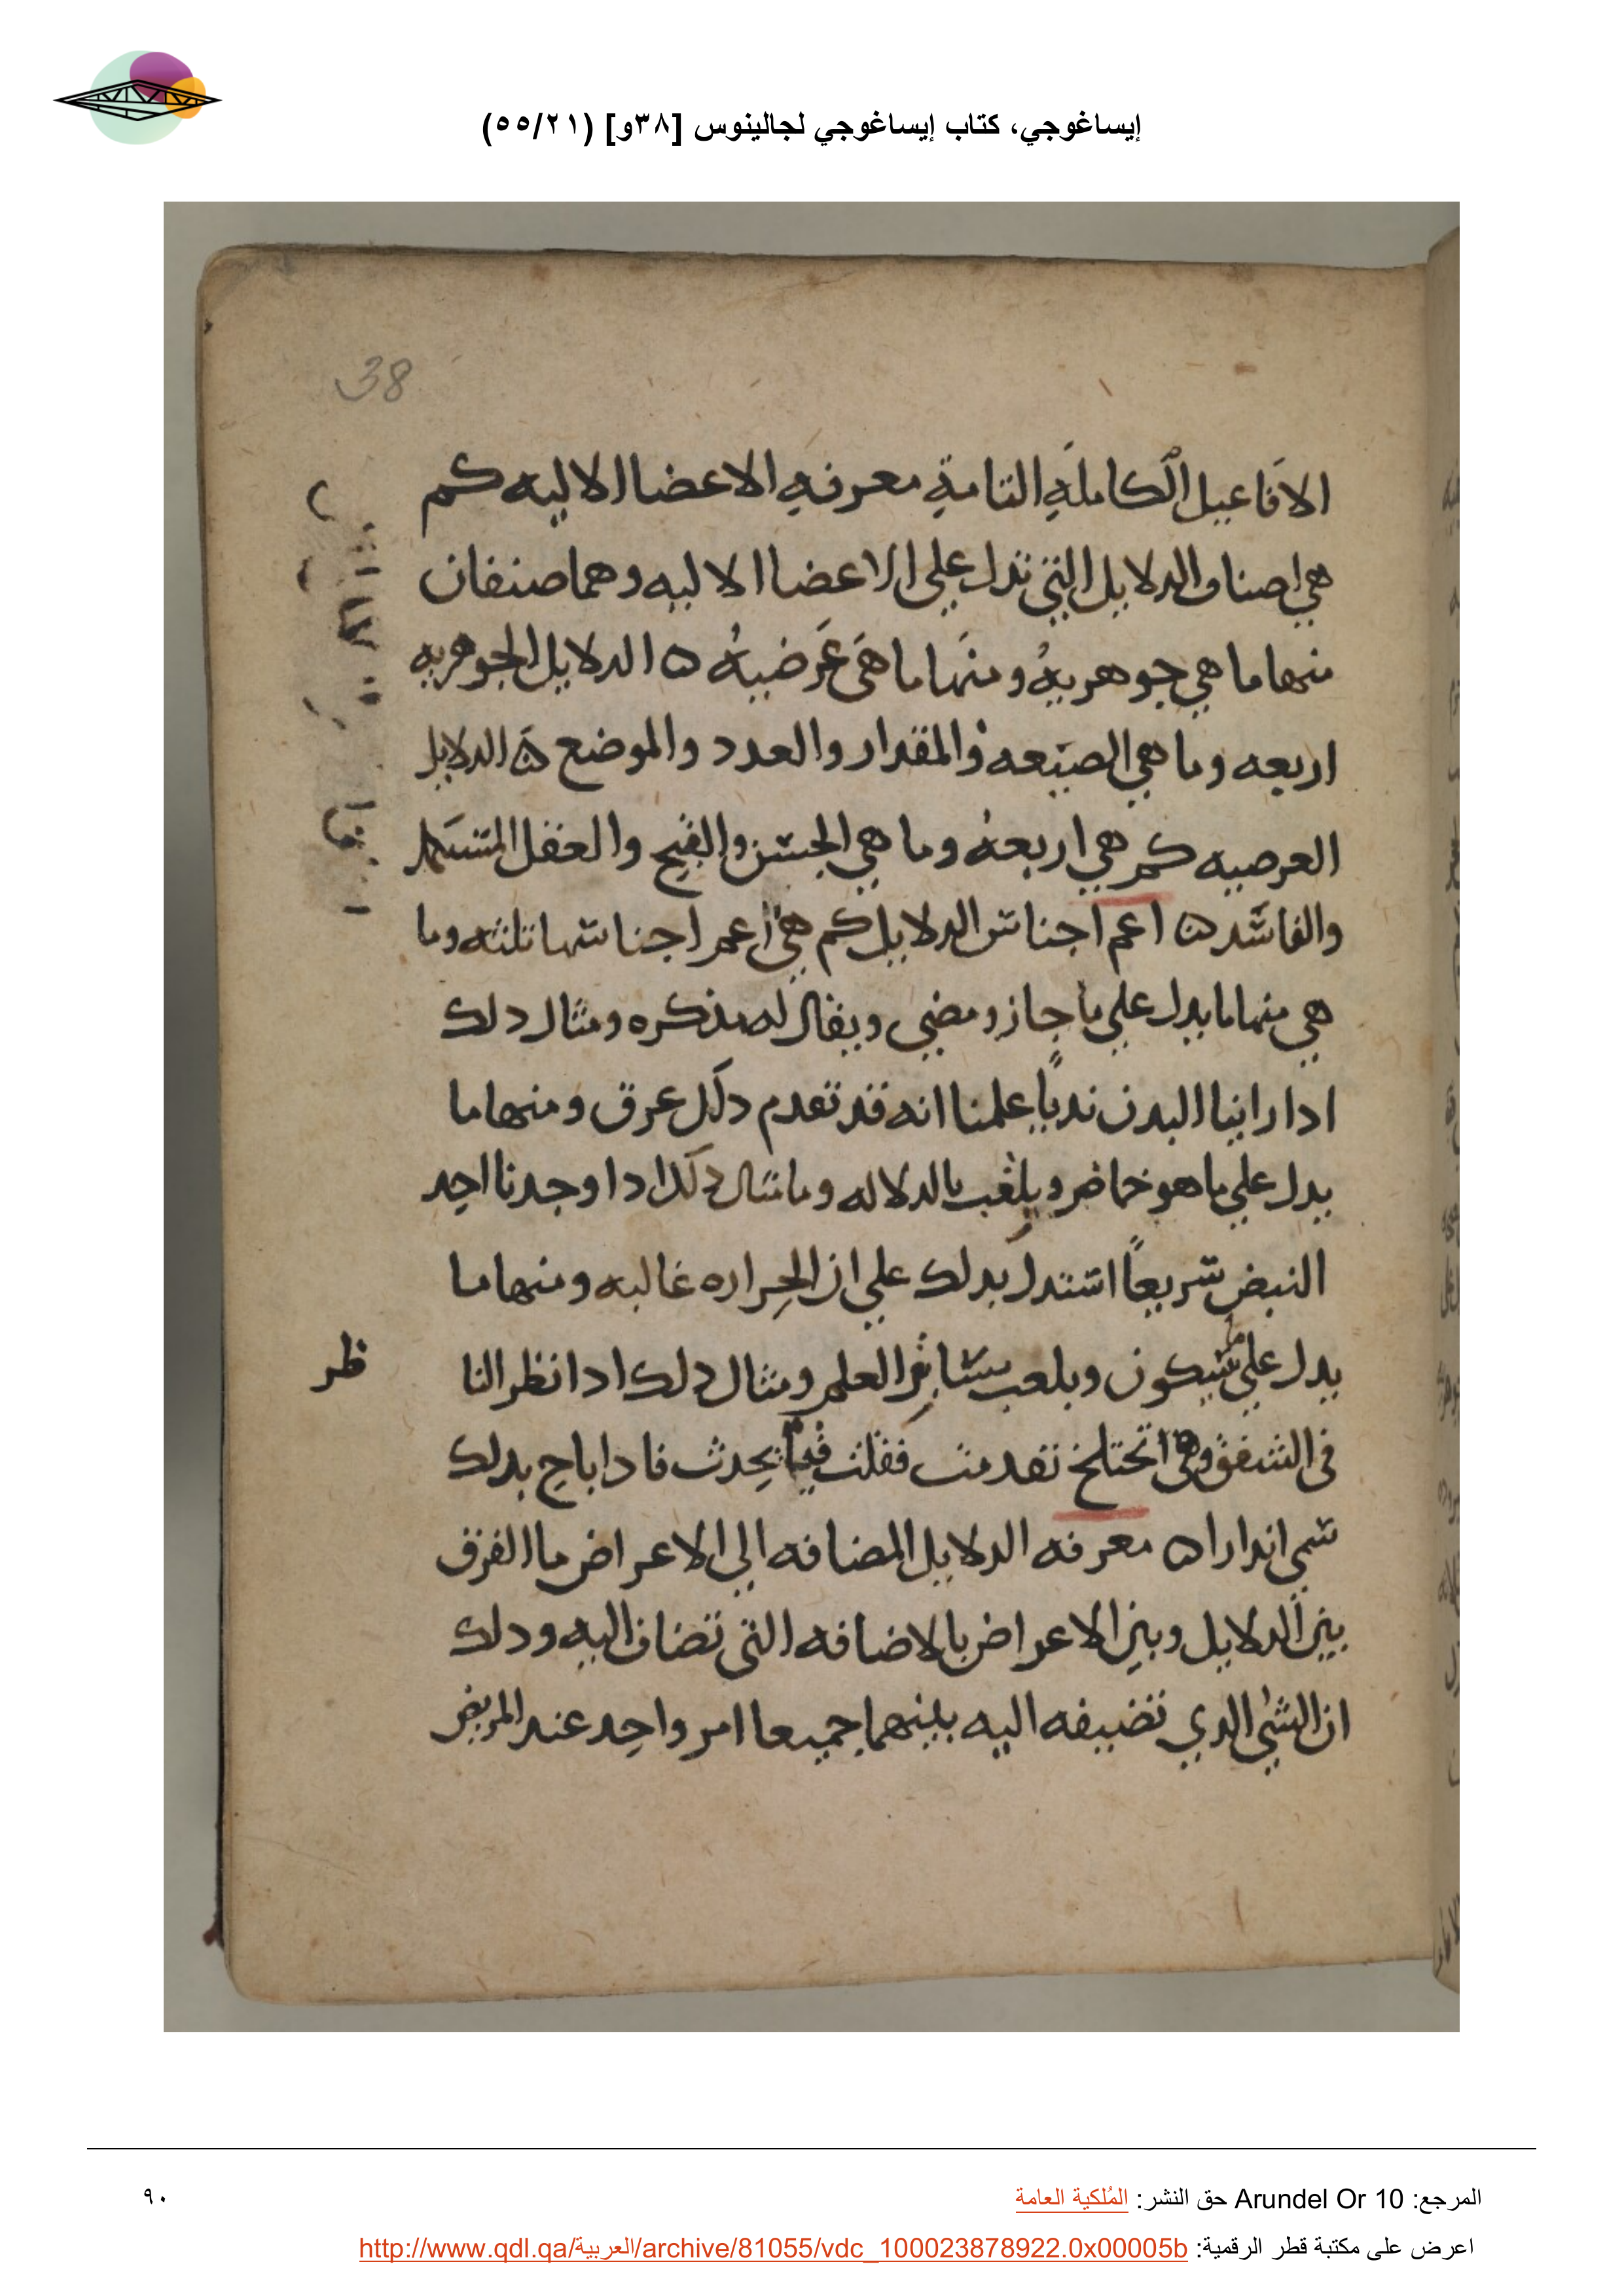 إيساغوجي، كتاب إيساغوجي لجالينوس [٣٨و] (٥٥/٢١)
38
الافاعيل الكاملة التامة معرفة الاعضا الاليه كم
هي اصناف الدلايل التي تدل علي الاعضا الاليه وهما صنفان
منها ما هي جوهريةٌ ومنها ما هي عَرَضيةٌ ه الدلايل الجوهريه
اربعه وما هي الصنعه والمقدار والعدد والموضع ه الدلايل
العرضيه كم هي اربعة وما هي الحسن والقبح والفعل
والفاسد ه اعم اجناس الدلايل كم هي اعم اجناسها ثلثه وما
هي منها ما يدل علي ما جاز ومضي ويقال له مذكره ومثال دلك
ادا راينا البدن نديًا علمنا انه قد تقدم دلك عرق ومنها ما
يدل علي ما هو حاضر ويلقب بالدلاله وما مثال دلك ادا وجدنا احد
النبض سريعًا استدل بدلك علي ان الحراره غالبه ومنها ما
يدل علي ما سيكون ويلعب بسابق العلم ومثال دلك ادا نظر النا
ظر
في الشفق وهي تختلج تقدمت فقلت يحدث فادا باح بدلك
سمي اندارا ه معرفه الدلايل المضافه الي الاعراض ما الفرق
بين الدلايل وبين الاعراض بالاضافه التي تضاف اليه ودلك
ان الشي الدي تضيفه اليه بينهما جميعا امر واحد عند المريض
المرجع: Arundel Or 10 حق النشر: المُلكية العامة
٩٠
اعرض على مكتبة قطر الرقمية: http://www.qdl.qa/العربية/archive/81055/vdc_100023878922.0x00005b